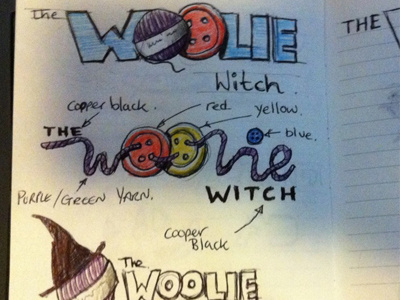 The WOOLIE
Witch.
copper black. red. yellow.
THE woolie blue.
PURPLE/GREEN YARN. WITCH
Cooper
Black
The
WOOLIE
THE